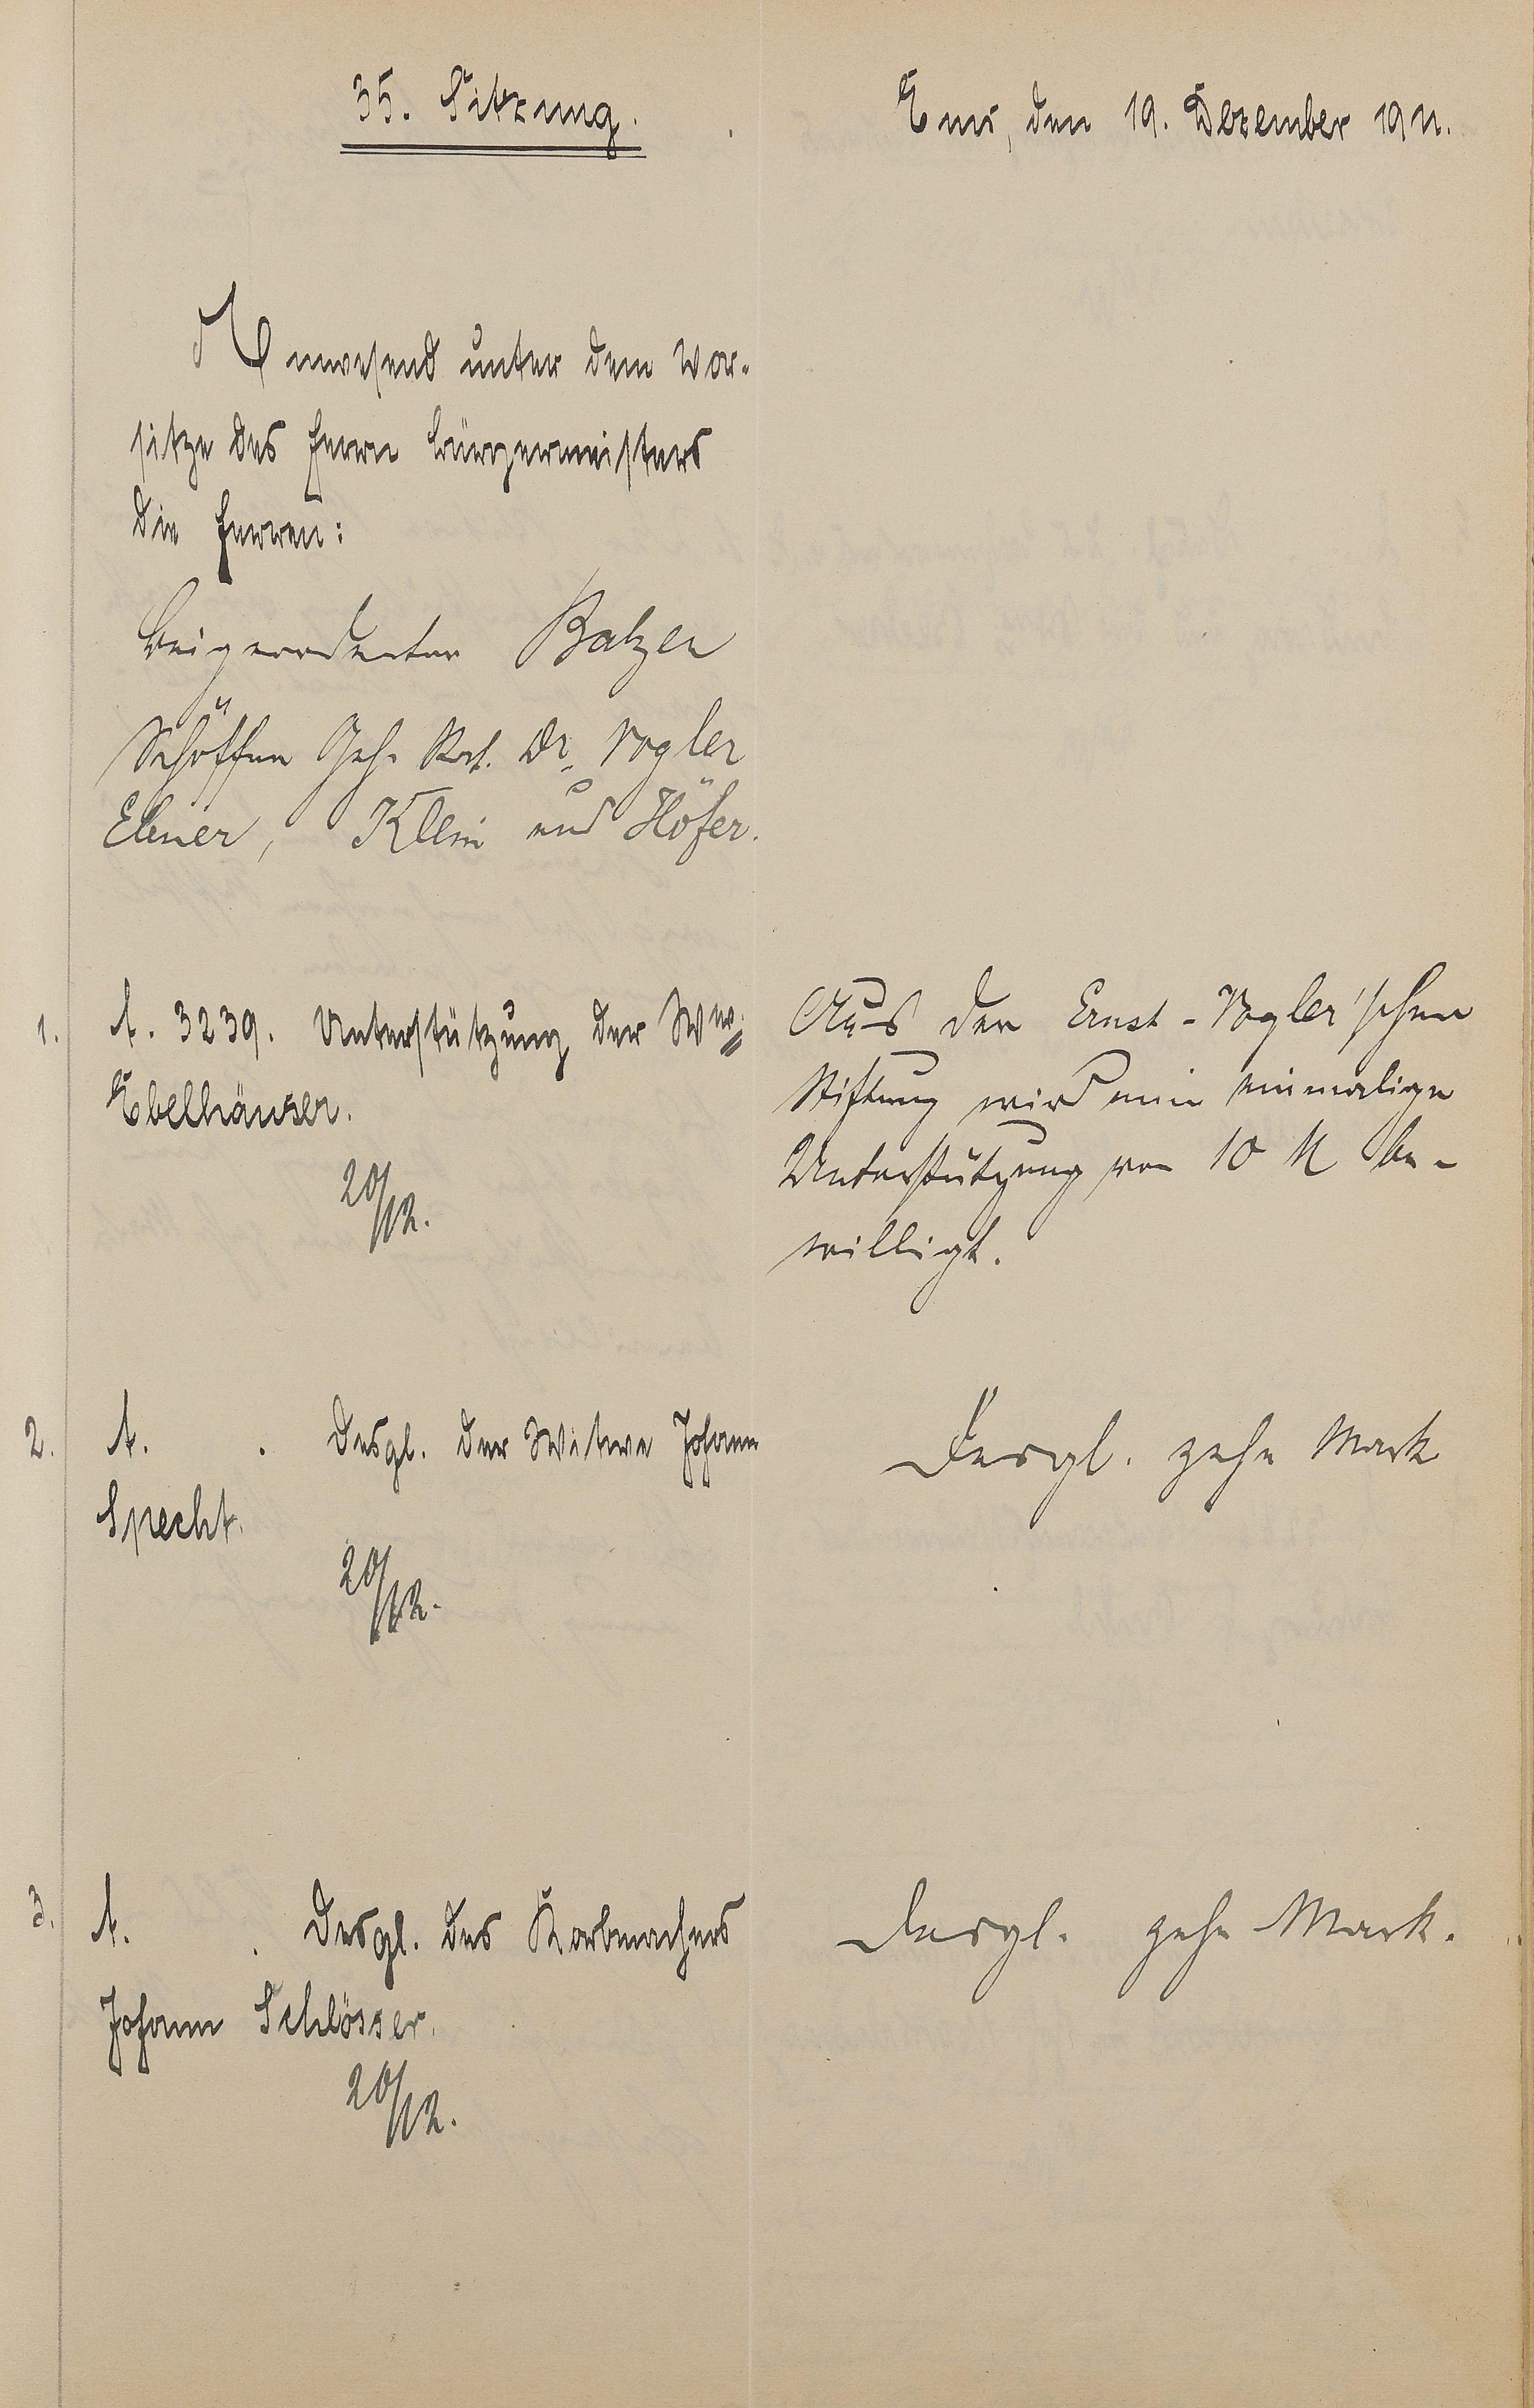 35. Sitzung.
Ems, den 19. Dezember 1911.
Anwesend unter dem Vor-
sitze des Herrn Bürgermeisters
die Herren:
Beigeordneter Balzer
Schöffen Geh. Rat. Dr. Vogler
Ebner, Klein und Höfer.
1. A. 3239. Unterstützung der Ww.
Ebelhäuser.
20/12.
Aus der Ernst-Vogler'schen
Stiftung wird eine einmalige
Unterstützung von 10 M be-
willigt.
2. A. . Desgl. der Witwe Johann
Specht.
20/12.
Desgl. zehn Mark
3. A. . Desgl. des Korbmachers
Johann Schlösser.
20/12.
Desgl. zehn Mark.